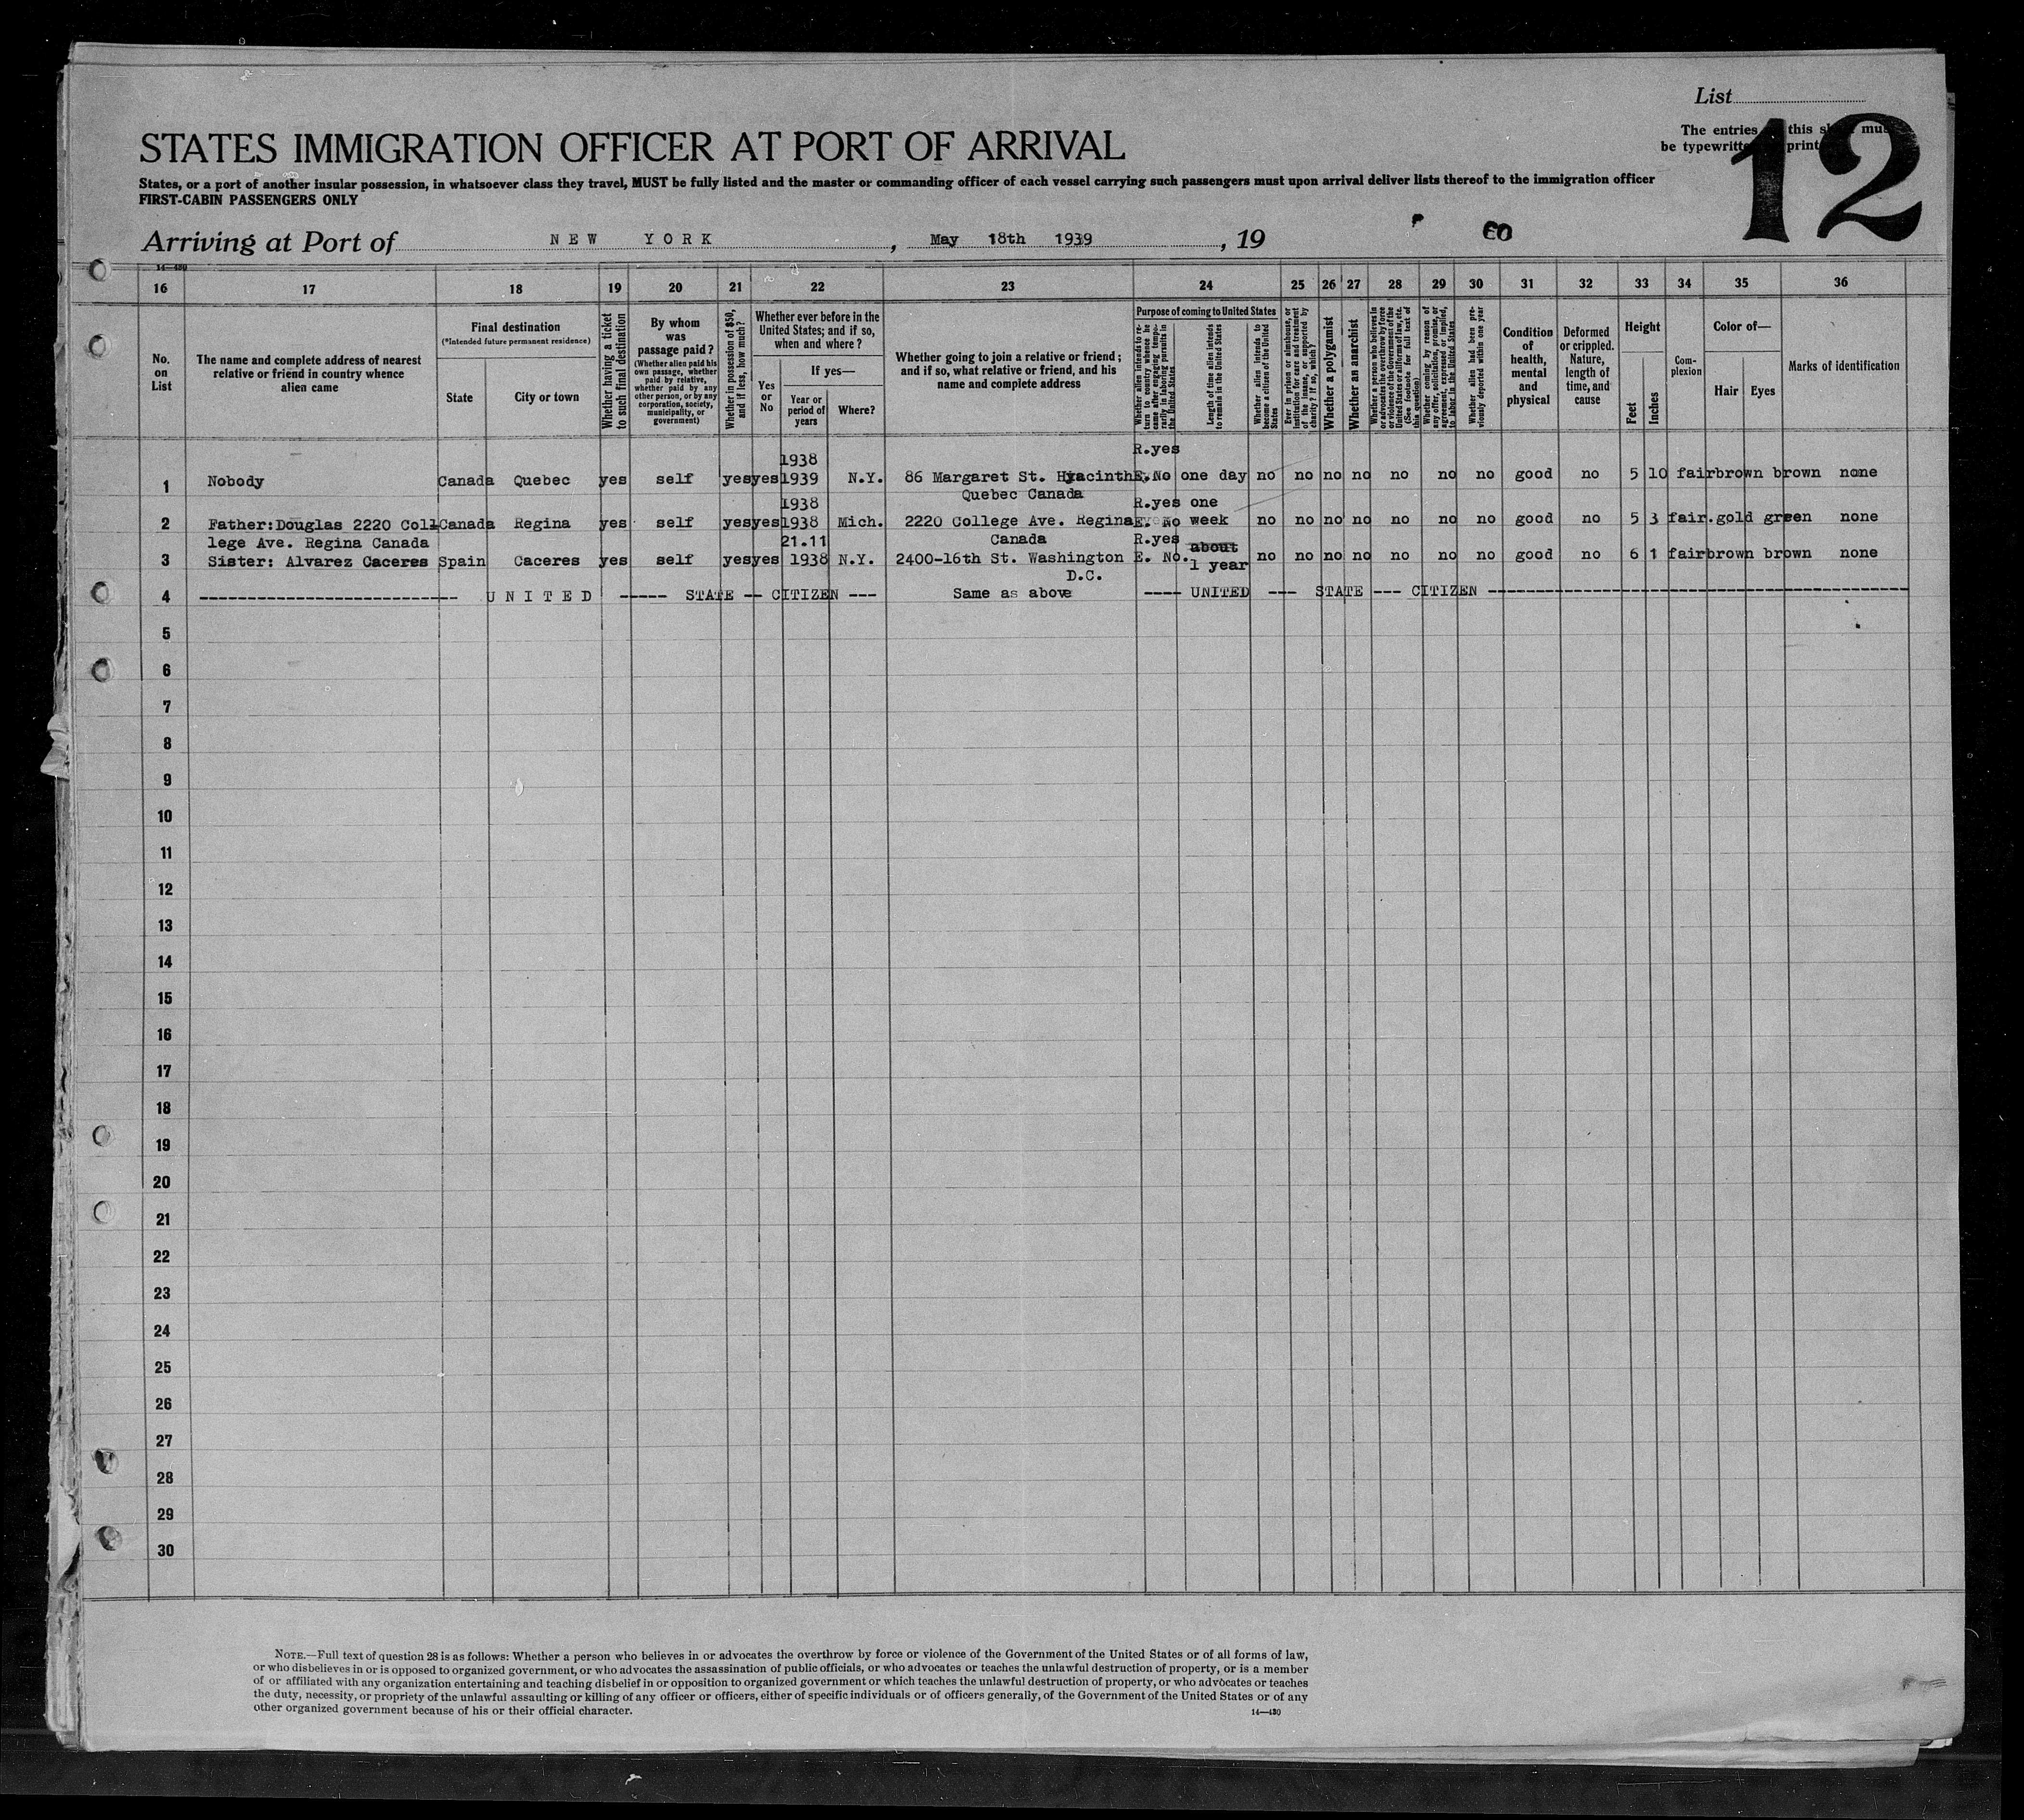 List
12
The entries this sheet must
be typewritten print
STATES IMMIGRATION OFFICER AT PORT OF ARRIVAL
States, or a port of another insular possession, in whatsoever class they travel, MUST be fully listed and the master or commanding officer of each vessel carrying such passengers must upon arrival deliver lists thereof to the immigration officer
FIRST-CABIN PASSENGERS ONLY
Arriving at Port of NEW YORK, May 18th 1939, 19
14—430
16 17 18 19 20 21 22 23 24 25 26 27 28 29 30 31 32 33 34 35 36
No. on List
The name and complete address of nearest relative or friend in country whence alien came
Final destination
(*Intended future permanent residence)
State
City or town
Whether having a ticket to such final destination
By whom was passage paid?
(Whether alien paid his own passage, whether paid by relative, whether paid by any other person, or by any corporation, society, municipality, or government)
Whether in possession of $50, and if less, how much?
Whether ever before in the United States; and if so, when and where?
Yes or No
If yes—
Year or period of years
Where?
Whether going to join a relative or friend; and if so, what relative or friend, and his name and complete address
Purpose of coming to United States
Whether alien intends to return to country whence he came after engaging temporarily in laboring pursuits in the United States
Length of time alien intends to remain in the United States
Whether alien intends to become a citizen of the United States
Ever in prison or almshouse, or institution for care and treatment of the insane, or supported by charity? If so, which?
Whether a polygamist
Whether an anarchist
Whether a person who believes in or advocates the overthrow by force or violence of the Government of the United States or all forms of law, etc. (See footnote for full text of this question)
Whether coming by reason of any offer, solicitation, promise, or agreement, expressed or implied, to labor in the United States
Whether alien had been previously deported within one year
Condition of health, mental and physical
Deformed or crippled. Nature, length of time, and cause
Height
Feet
Inches
Complexion
Color of—
Hair
Eyes
Marks of identification
1938 R.yes
1 Nobody Canada Quebec yes self yes yes 1939 N.Y. 86 Margaret St. Hyacinthe E.No one day no no no no no no no good no 5 10 fair brown brown none
1938 Quebec Canada R.yes one
2 Father:Douglas 2220 Col Canada Regina yes self yes yes 1938 Mich. 2220 College Ave. Regina E. No week no no no no no no no good no 5 3 fair.gold green none
lege Ave. Regina Canada 21.11 Canada R.yes about
3 Sister: Alvarez Caceres Spain Caceres yes self yes yes 1938 N.Y. 2400-16th St. Washington E. No. 1 year no no no no no no no good no 6 1 fair brown brown none
D.C.
4 ---- UNITED ----- STATE -- CITIZEN --- Same as above ---- UNITED --- STATE --- CITIZEN ----
5
6
7
8
9
10
11
12
13
14
15
16
17
18
19
20
21
22
23
24
25
26
27
28
29
30
NOTE.—Full text of question 28 is as follows: Whether a person who believes in or advocates the overthrow by force or violence of the Government of the United States or of all forms of law,
or who disbelieves in or is opposed to organized government, or who advocates the assassination of public officials, or who advocates or teaches the unlawful destruction of property, or is a member
of or affiliated with any organization entertaining and teaching disbelief in or opposition to organized government or which teaches the unlawful destruction of property, or who advocates or teaches
the duty, necessity, or propriety of the unlawful assaulting or killing of any officer or officers, either of specific individuals or of officers generally, of the Government of the United States or of any
other organized government because of his or their official character.
14—430